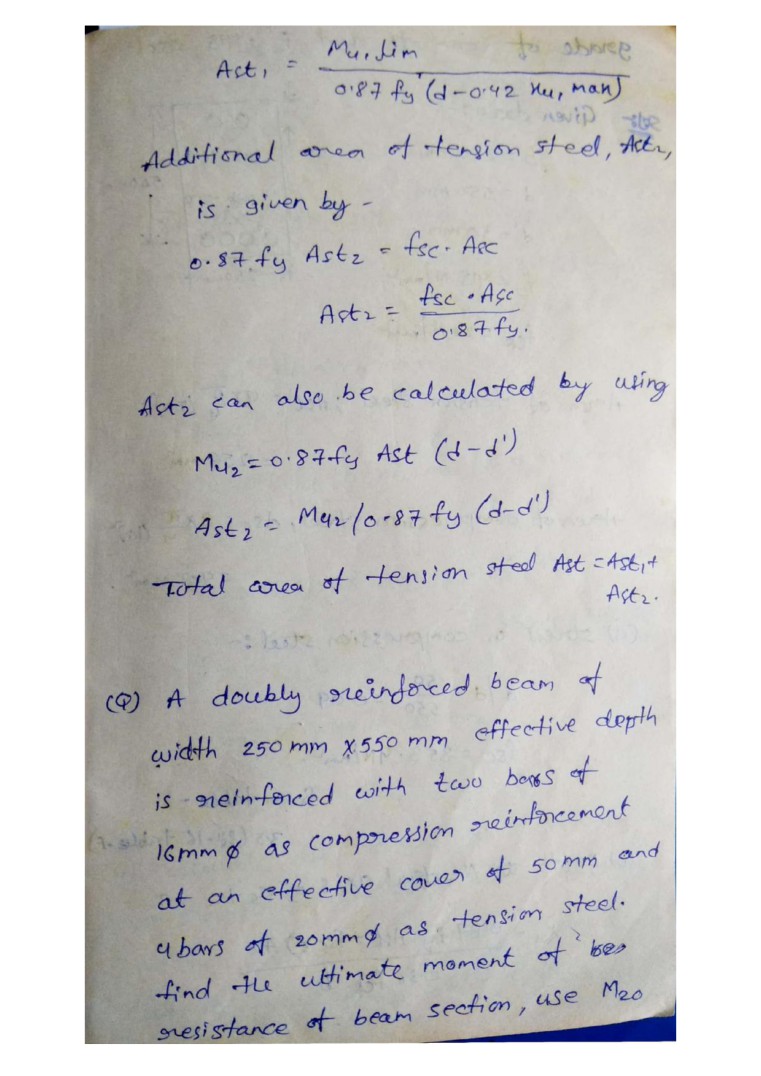 Ast₁ = Mu, lim / 0.87 fy (d-0.42 xu, max)
Additional area of tension steel, Ast₂,
is given by -
0.87 fy Ast₂ = fsc. Asc
Ast₂ = fsc . Asc / 0.87 fy.
Ast₂ can also be calculated by using
Mu₂ = 0.87 fy Ast (d-d')
Ast₂ = Mu₂ / 0.87 fy (d-d')
Total area of tension steel Ast = Ast₁ +
Ast₂.
(Q) A doubly reinforced beam of
width 250 mm x 550 mm effective depth
is reinforced with two bars of
16mm ϕ as compression reinforcement
at an effective cover of 50 mm and
4 bars of 20mm ϕ as tension steel.
find the ultimate moment of
resistance of beam section, use M20